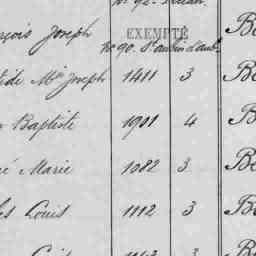 No 92.
çois Joseph EXEMPTÉ
No 90. St aubin d'aub. Be
ide Mie Joseph 1411 3 Be
Baptiste 1901 4 Be
é Marie 1082 3 Be
les Louis 1112 3 Be